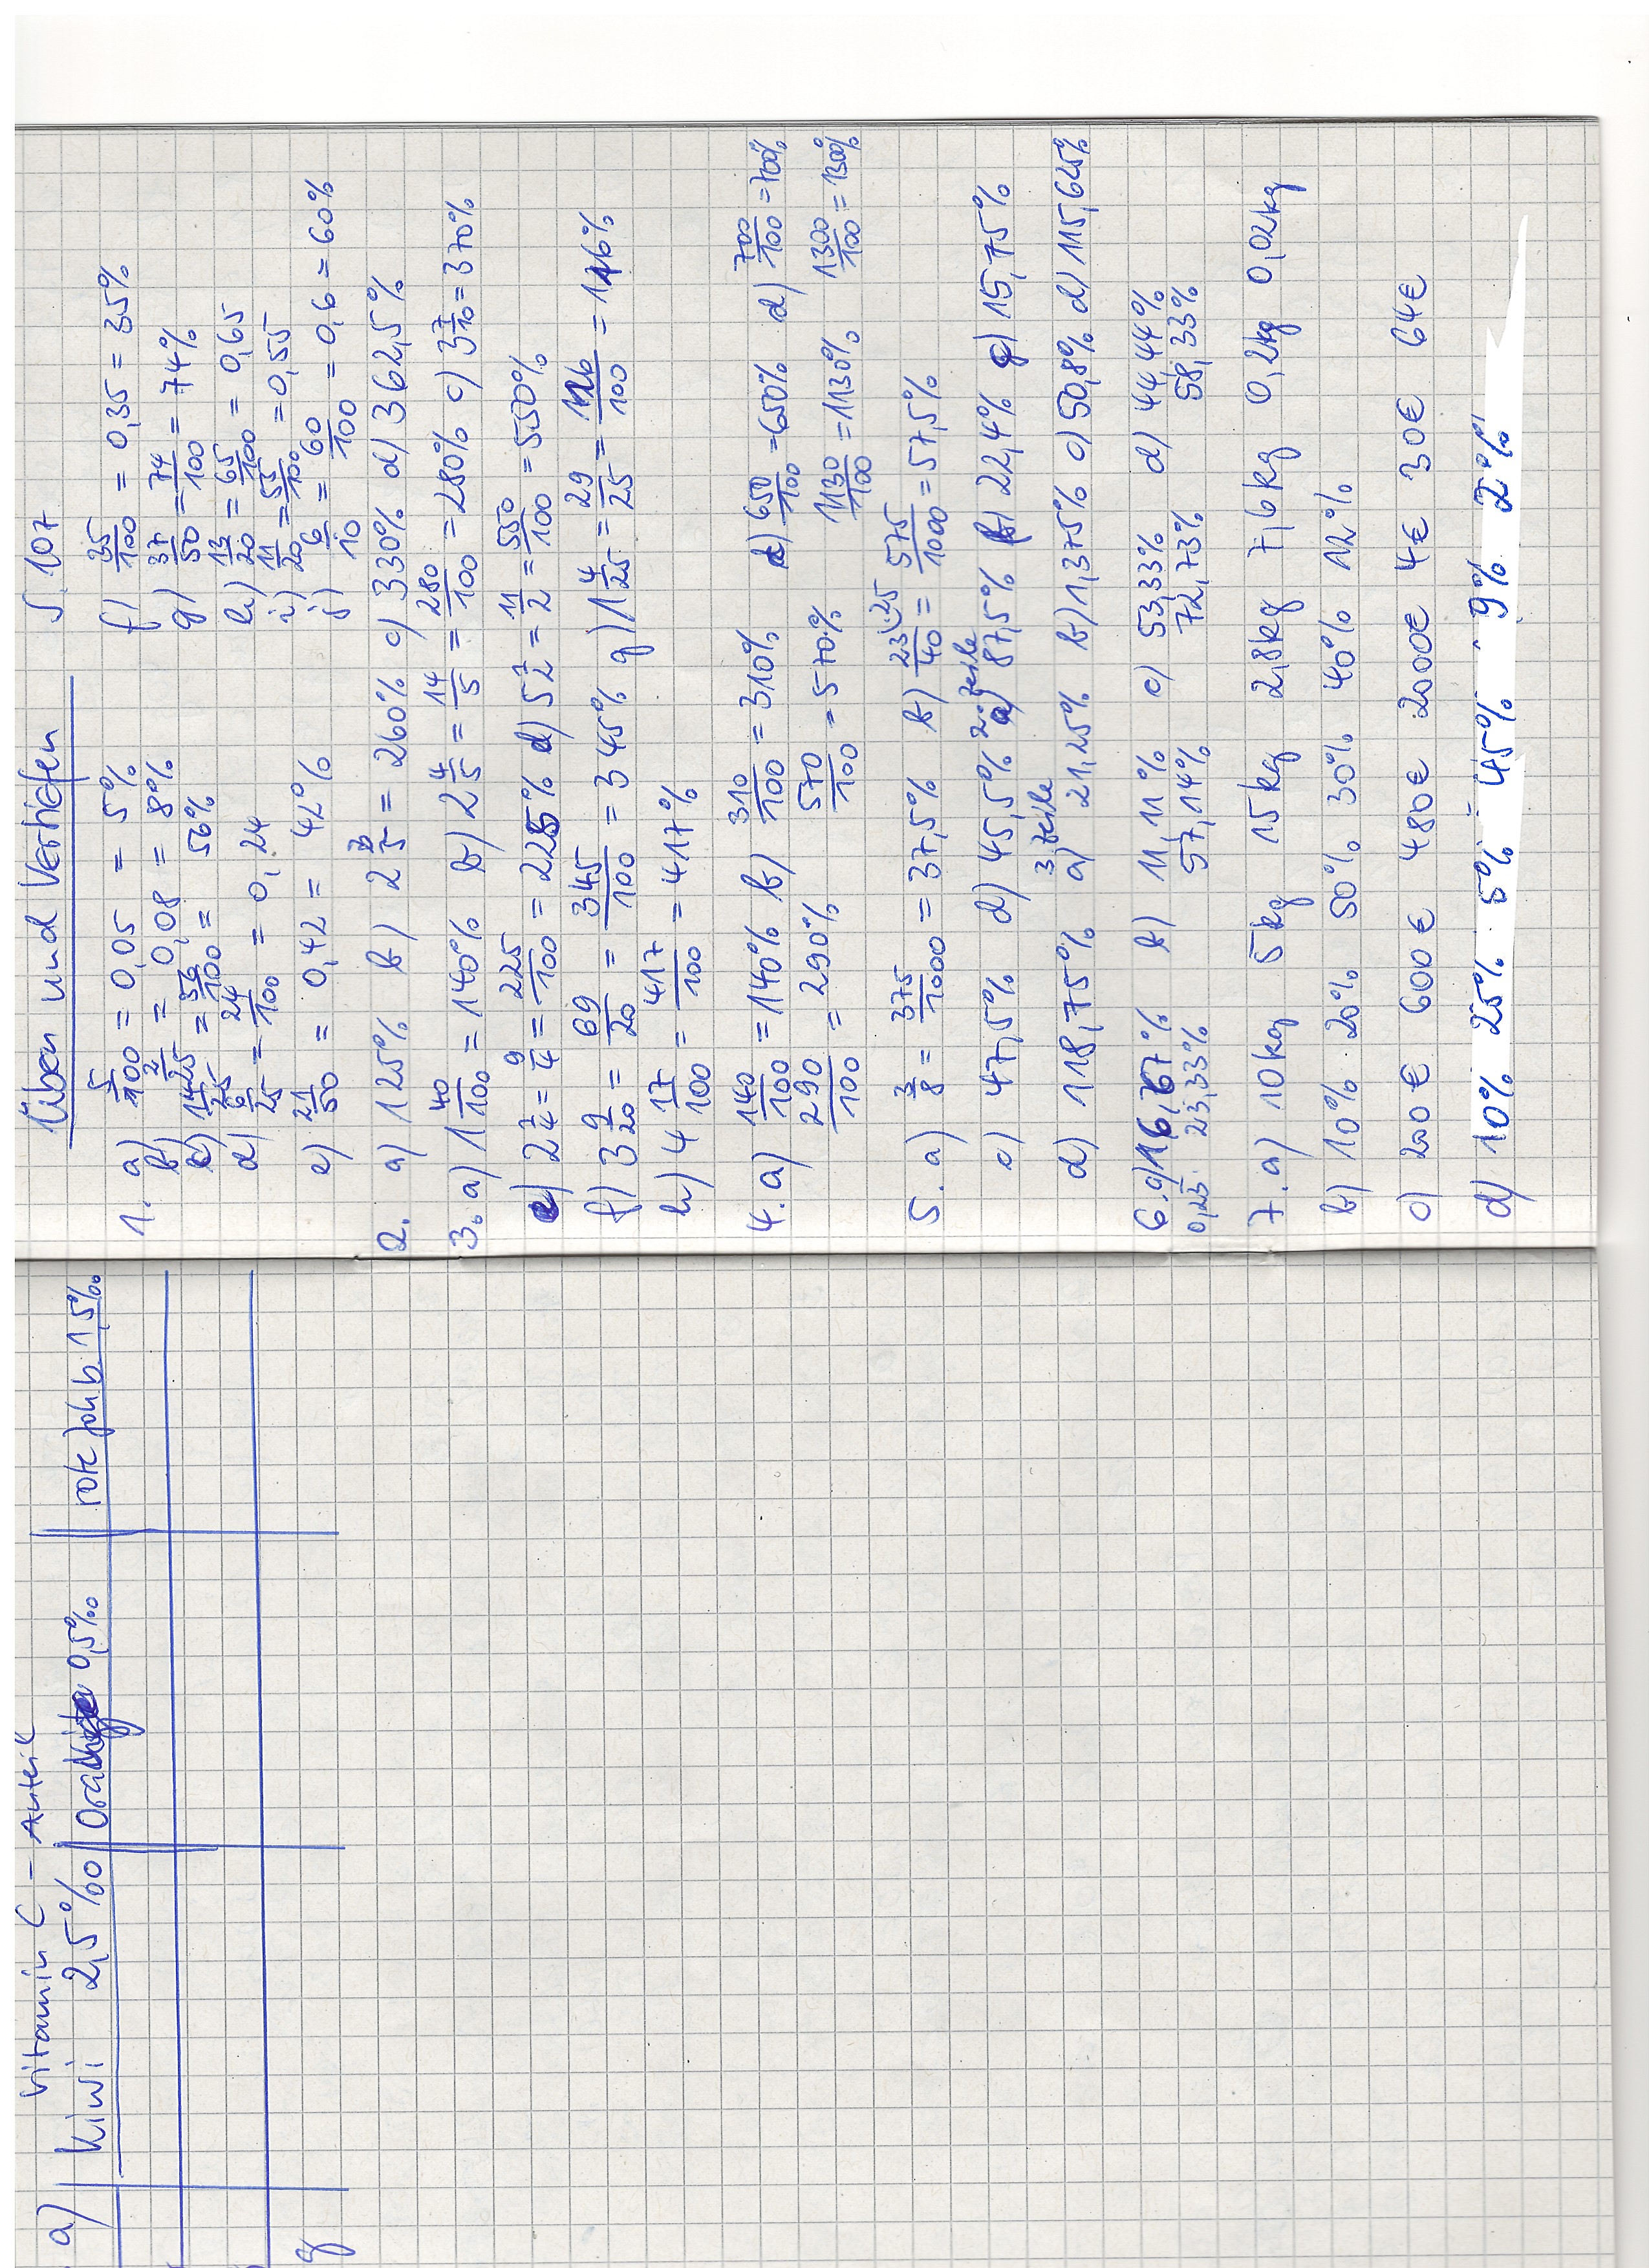 Vitamin C - Anteil
a) Kiwi 2,5‰ Orange 0,5‰ rote Joh.b. 1,5‰
g
Üben und Vertiefen S. 107
1. a) 5/100 = 0,05 = 5% f) 35/100 = 0,35 = 35%
b) 2/25 = 0,08 = 8% g) 37/50 = 74/100 = 74%
c) 14/25 = 56/100 = 56% h) 13/20 = 65/100 = 0,65
d) 6/25 = 24/100 = 0,24 i) 11/20 = 55/100 = 0,55
e) 21/50 = 0,42 = 42% j) 6/10 = 60/100 = 0,6 = 60%
2. a) 125% b) 2 3/5 = 260% c) 330% d) 362,5%
3. a) 1 40/100 = 140% b) 2 4/5 = 14/5 = 280/100 = 280% c) 3 7/10 = 370%
e) 2 1/4 = 9/4 = 225/100 = 225% d) 5 1/2 = 11/2 = 550/100 = 550%
f) 3 9/20 = 69/20 = 345/100 = 345% g) 1 4/25 = 29/25 = 116/100 = 116%
h) 4 17/100 = 417/100 = 417%
4. a) 140/100 = 140% b) 310/100 = 310% c) 650/100 = 650% d) 700/100 = 700%
290/100 = 290% 570/100 = 570% 1130/100 = 1130% 1300/100 = 1300%
5. a) 3/8 = 375/1000 = 37,5% b) 23/40 = 575/1000 = 57,5%
c) 47,5% d) 45,5% 2. Zeile a) 87,5% b) 22,4% c) 15,75%
d) 118,75% 3 Zeile a) 21,25% b) 1,375% c) 50,8% d) 115,625%
6. a) 16,67% b) 11,11% c) 53,33% d) 44,44%
0,23 23,33% 57,14% 72,73% 58,33%
7. a) 10kg 5kg 15kg 2,8kg 7,6kg 0,2kg 0,02kg
b) 10% 20% 50% 30% 40% 12%
c) 200€ 600€ 480€ 2000€ 4€ 30€ 64€
d) 10% 25% 5% 45% 9% 2%